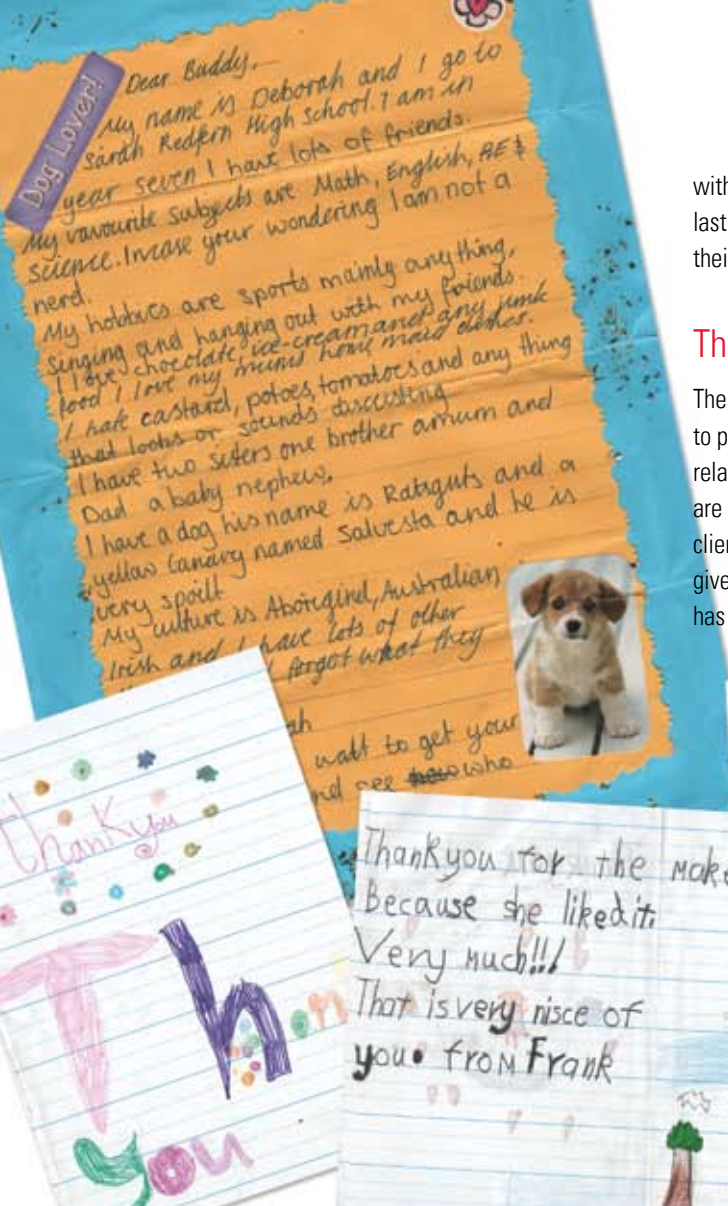 Dog Lover!
Dear Buddy,
My name is Deborah and I go to
Sarah Redfern High School. I am in
year seven I have lots of friends.
My vavourite subjects are Math, English, RE &
science. Incase your wondering I am not a
nerd.
My hobbies are sports mainly any thing,
singing and hanging out with my friends.
I love chocolate, ice-cream and any junk
food I love my mums home maid dishes.
I hate castard, potoes, tomatoes and any thing
that looks or sounds disccusting
I have two sisters one brother a mum and
Dad a baby nephew.
I have a dog his name is Ratsguts and a
yellow Canary named Salvesta and he is
very spoilt
My culture is Aboriginel, Australian
Irish and I have lots of other
I forgot what they
wait to get your
see who
Thankyou
Than
you
Thankyou for the make
Because she liked it.
Very much!!!
That is very nisce of
you. from Frank
with
last
thei
Th
The
to p
rela
are
clien
give
has